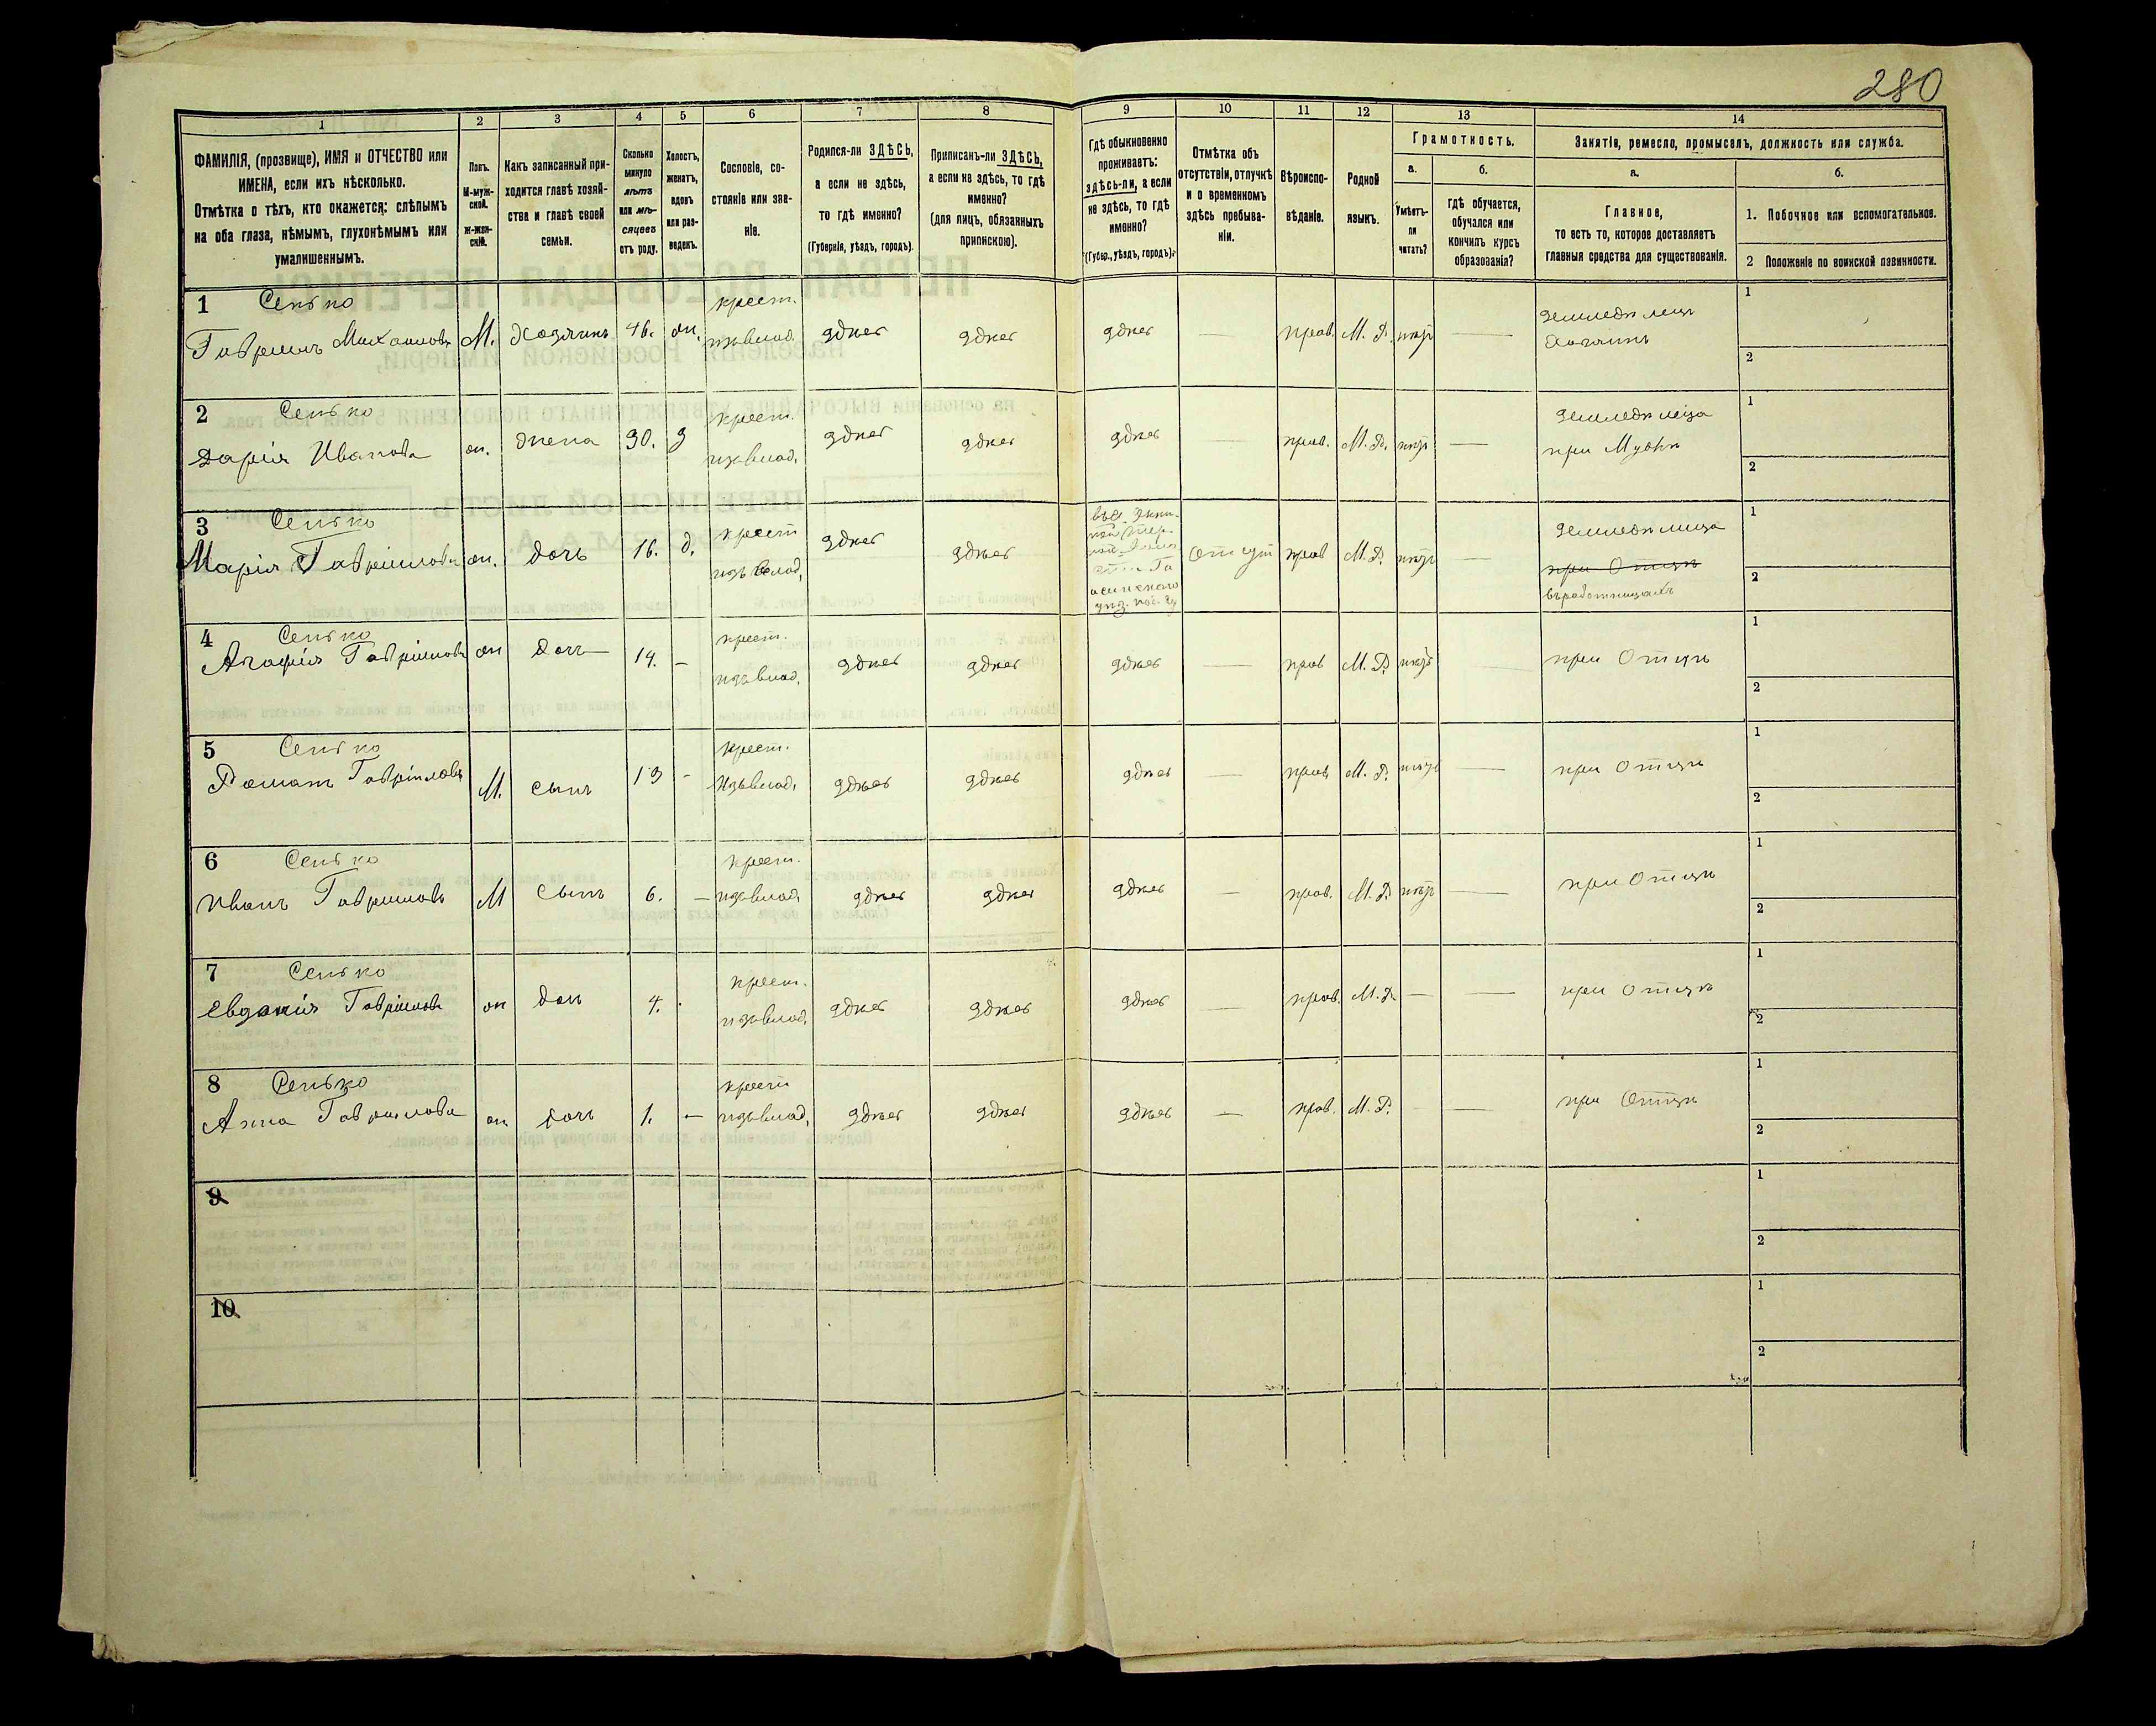 280
1 2 3 4 5 6 7 8 9 10 11 12 13 14
ФАМИЛІЯ, (прозвище), ИМЯ и ОТЧЕСТВО или
ИМЕНА, если ихъ нѣсколько.
Отмѣтка о тѣхъ, кто окажется: слѣпымъ
на оба глаза, нѣмымъ, глухонѣмымъ или
умалишеннымъ.
Полъ.
М-муж-
ской.
Ж-жен-
скій.
Какъ записанный при-
ходится главѣ хозяй-
ства и главѣ своей
семьи.
Сколько
минуло
лѣтъ
или мѣ-
сяцевъ
отъ роду.
Холостъ,
женатъ,
вдовъ
или раз-
веденъ.
Сословіе, со-
стояніе или зва-
ніе.
Родился-ли ЗДѢСЬ,
а если не здѣсь,
то гдѣ именно?
(Губернія, уѣздъ, городъ).
Приписанъ-ли ЗДѢСЬ,
а если не здѣсь, то гдѣ
именно?
(для лицъ, обязанныхъ
припискою).
Гдѣ обыкновенно
проживаетъ:
здѣсь-ли, а если
не здѣсь, то гдѣ
именно?
(Губер., уѣздъ, городъ).
Отмѣтка объ
отсутствіи, отлучкѣ
и о временномъ
здѣсь пребыва-
ніи.
Вѣроиспо-
вѣданіе.
Родной
языкъ.
Грамотность.
а.
Умѣетъ-
ли
читать?
б.
гдѣ обучается,
обучался или
кончилъ курсъ
образованія?
Занятіе, ремесло, промыселъ, должность или служба.
а.
Главное,
то есть то, которое доставляетъ
главныя средства для существованія.
б.
1. Побочное или вспомогательное.
2 Положеніе по воинской повинности.
1 Сенько крест. 1
Гаврилъ М. Хозяинъ 46. ж. изъ влад. здѣсь здѣсь здѣсь — прав. М. Р. нѣтъ — Хозяинъ
2
2 Сенько крест. 1
Дарія Иванова ж. жена здѣсь здѣсь здѣсь — прав. М. Р. нѣтъ — при Мужѣ
изъ влад. 2
3 Сенько крест 1
Марія Гаврилова ж. дочь 16. д. изъ влад. здѣсь здѣсь прав М. Р. нѣтъ —
при Отцѣ
въ работницахъ
2
4 Сенько крест. 1
Агафія Гаврилова ж дочь 14. – изъ влад. здѣсь здѣсь здѣсь — прав М. Р. нѣтъ при Отцѣ
2
5 Сенько крест. 1
Романъ Гавриловъ М. сынъ 13 - изъ влад. здѣсь здѣсь здѣсь — прав М. Р. нѣтъ — при Отцѣ
2
6 Сенько крест. 1
Иванъ Гавриловъ М сынъ 6. — изъ влад. здѣсь здѣсь здѣсь — прав. М. Р. нѣтъ — при Отцѣ
2
7 Сенько крест. 1
Евдокія Гаврилова ж дочь 4. изъ влад. здѣсь здѣсь здѣсь — прав. М. Р. — — при Отцѣ
2
8 Сенько крест 1
Анна Гаврилова ж дочь 1. — изъ влад. здѣсь здѣсь здѣсь — прав. М. Р. — при Отцѣ
2
9 1
2
10. 1
2